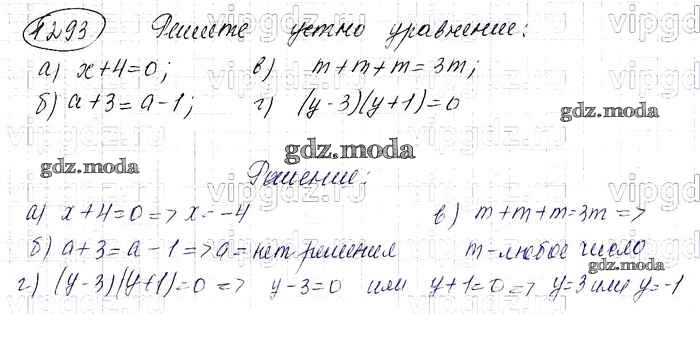 1293 Решите устно уравнение:
а) x+4=0; в) m+m+m=3m;
б) a+3=a-1; г) (y-3)(y+1)=0
gdz.moda
gdz.moda
gdz.moda
Решение:
а) x+4=0=> x=-4 в) m+m+m=3m=>
б) a+3=a-1=>a=нет решения m-любое число
gdz.moda
г) (y-3)(y+1)=0 => y-3=0 или y+1=0=> y=3 или y=-1